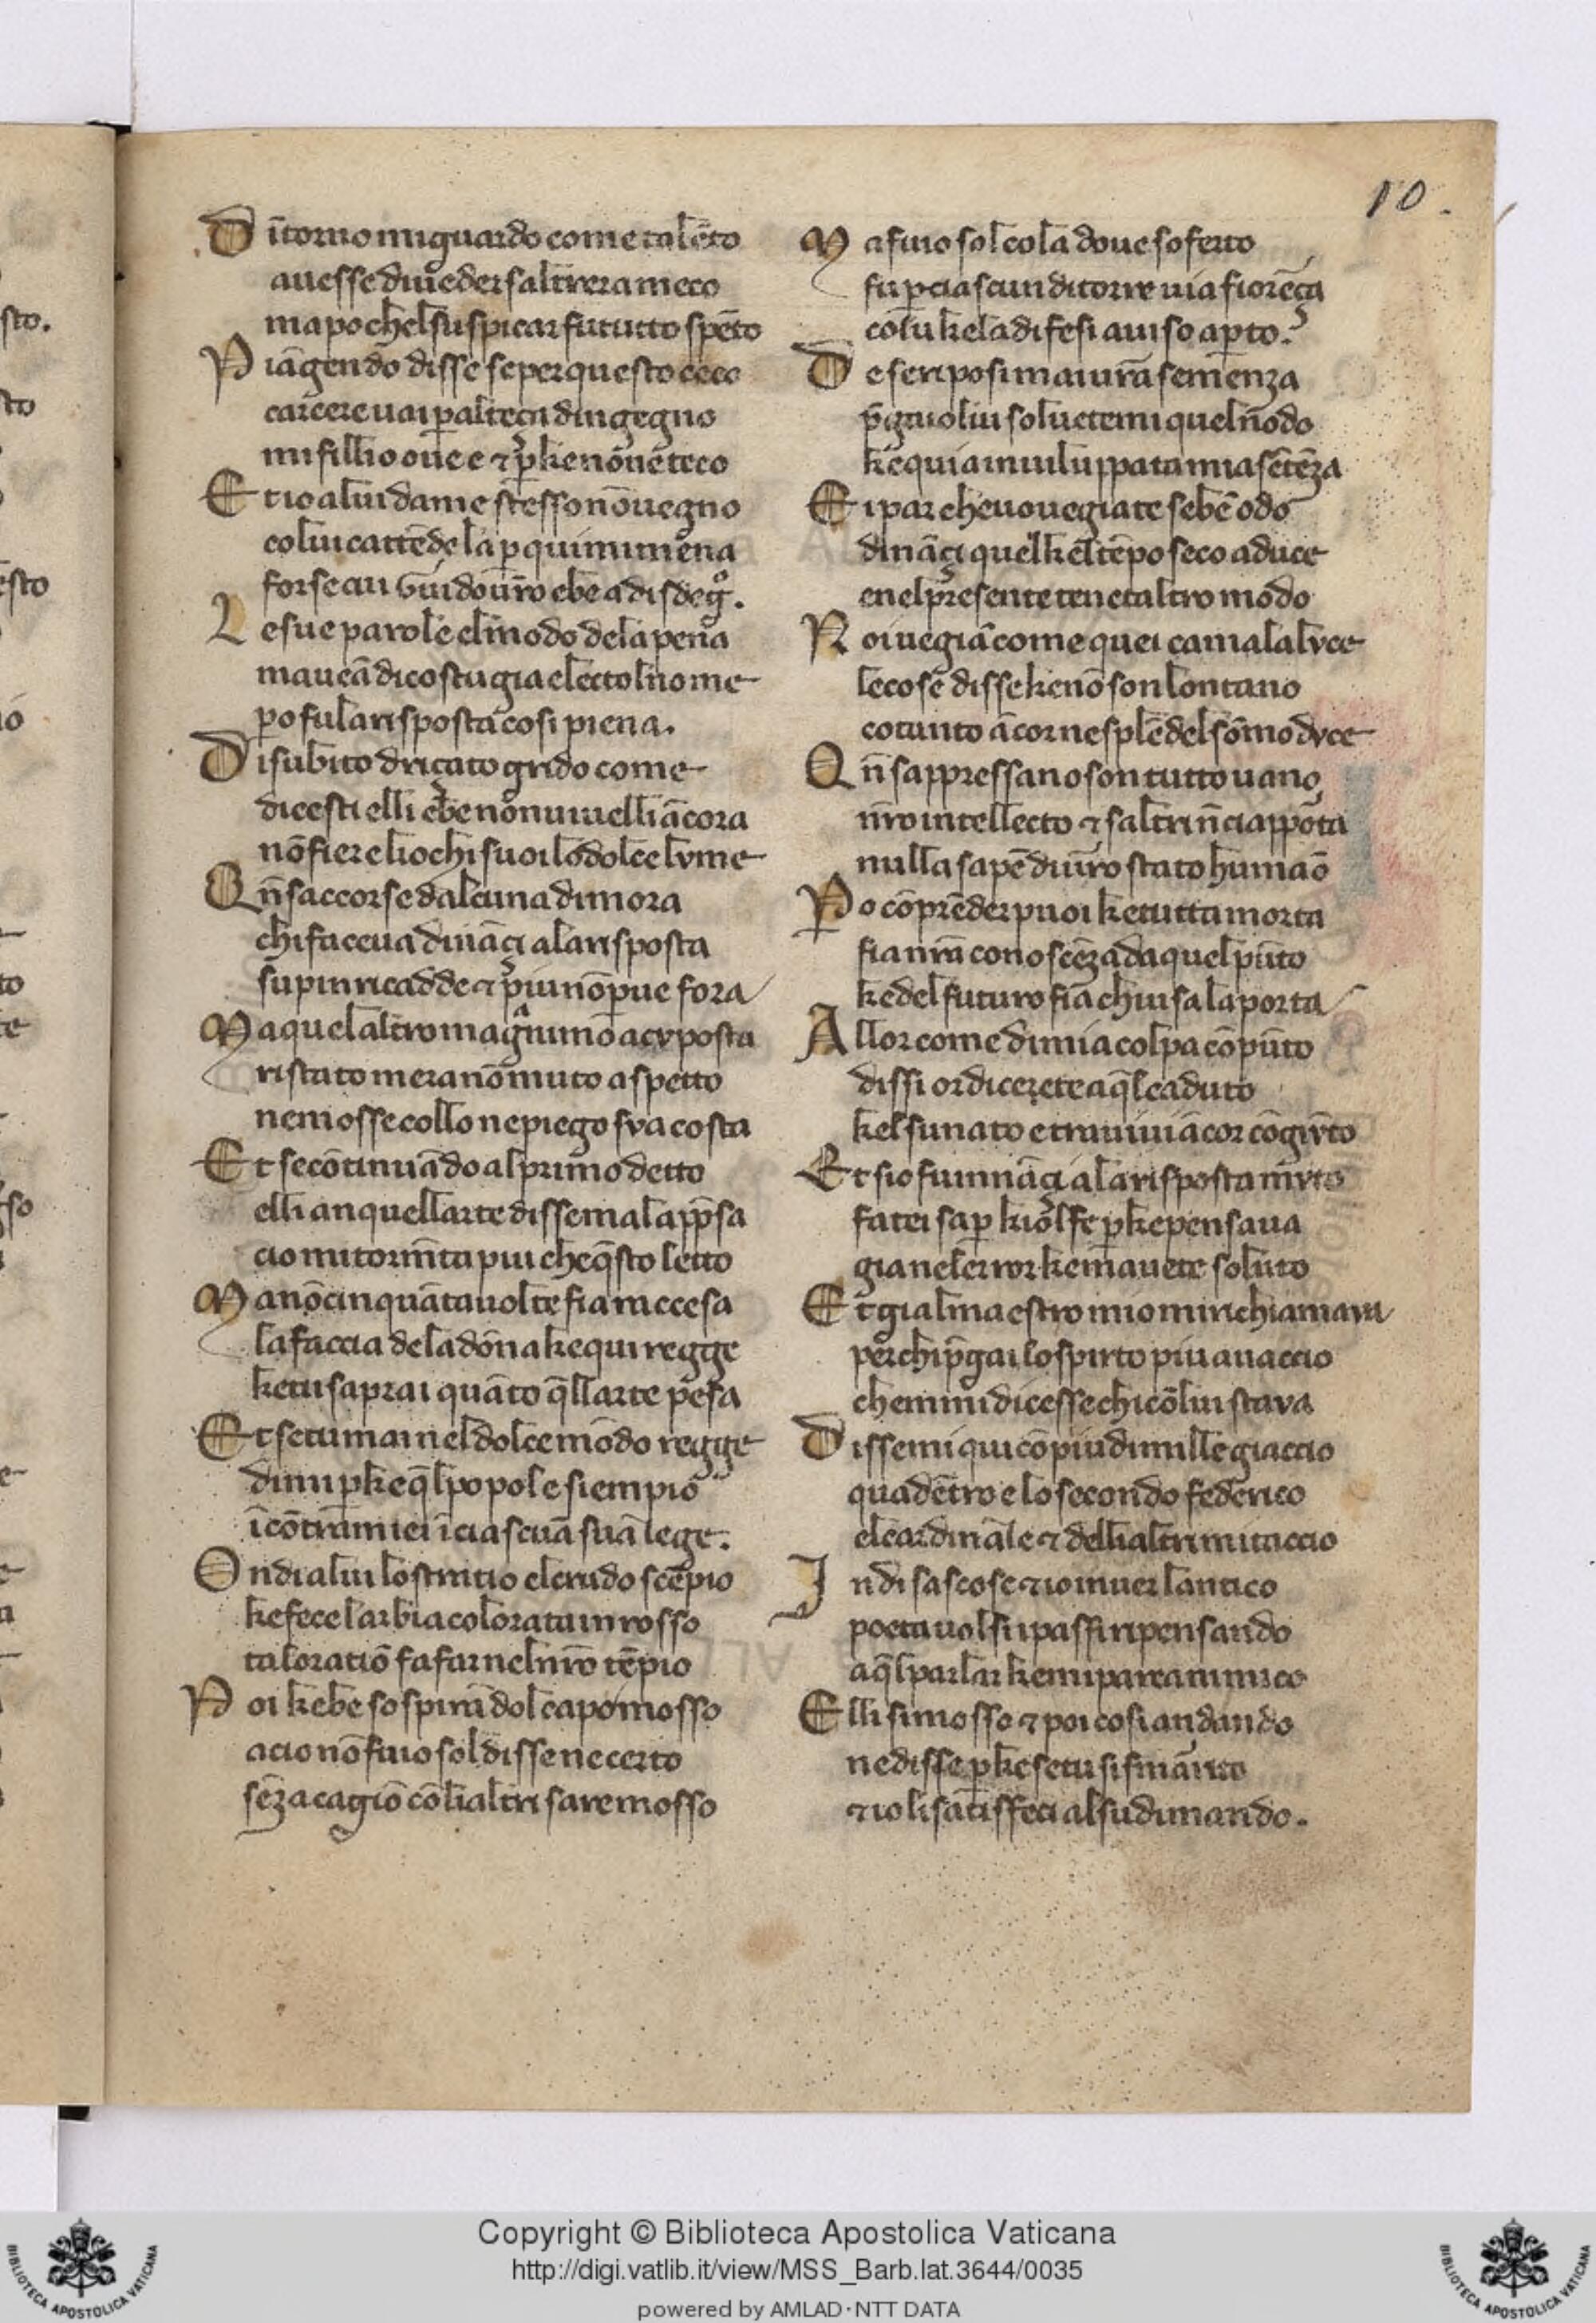 10.
D ītorno mi guardo come talēto
avesse di veder saltrera meco
ma poche l suspicar fu tutto spēto
P iāgendo disse se per questo ceco
carcere vai p alteça dingegno
mi fillio ov e e ⁊ p ke nōn ē teco
E t io a lui da me stesso nō vegno
colui cattēde la p qui mi mena
forse cui Guido vr̄o ebe a disdeg̊.
L e sue parole el modo de la pena
mavēa di costu gia electo l nome
po fu la risposta cosi piena.
D i subito driçato grido come
dicesti elli ebe non viv elli ācora
nō fiere li ochi suoi lo dolce lvme
Q n̄ saccorse dalcuna dimora
chi faceva dināçi a la risposta
supin ricadde ⁊ piu nō parve fora
M a quel altro magnanimo a cv posta
ristato mera nō muto aspetto
ne mosse collo ne piego sva costa
E t se cōtinuādo al primo detto
elli an quellarte disse mal app̄sa
cio mi tormēta piu che q̄sto letto
M a nō cinquāta volte fia raccesa
la faccia de la dōna ke qui regge
ke tu saprai quāto q̄llarte pesa
E t se tu mai nel dolce mōdo regge
dimi p ke q̄l popol e si empio
īcōtra miei ī ciascuā sua lege.
O ndi a lui lo stratio el crudo scēpio
ke fece larbia colorata in rosso
tal oratiō fa far nel nr̄o tēpio
P oi kebe sospirādo l capo mosso
a cio nō fu io sol disse ne certo
sēza cagiō cō li altri sare mosso
M a fu io sol cola dove soferto
fu p ciascun di torre via fiorēça
colu ke la difesi a viso apto.
D e se riposi mai vr̄a semenza
p̄gai io lui solvetemi quel nodo
ke qui a inviluppata mia sētēza
E i par che voi vegiate se bē odo
dināçi quel kel tēpo seco aduce
e nel presente tenet altro modo
N oi vegiā come quei ca mala lvce
le cose disse ke nō son lontano
cotanto ācor ne splēde l sōmo dvce
Q n̄ sappressan o son tutto vano
nr̄o intellecto ⁊ saltri n̄ ci apporta
nulla sapē di vr̄o stato humāo
P o cōprēder puoi ke tutta morta
fia nr̄a conoscēza da quel pūto
ke del futuro fia chiusa la porta
A llor come di mia colpa cōpūto
dissi or dicerete a q̄l caduto
kel su nato e tra i vivi ācor cōgivto
E t sio fui ināçi a la risposta mvto
fatei sap kiol fe p ke pensava
gia nel error ke mavete soluto
E t gia l maestro mio mi richiamava
per chi p̄gai lo spirto piu avaccio
che mmi dicesse chi cō lui stava
D issemi qui cō piu di mille giaccio
qua dētro e lo secondo federico
el cardinale ⁊ delli altri mi taccio
I ndi sascose ⁊ io inver lantico
poeta volsi i passi ripensando
a q̄l parlar ke mi parea nimico
E lli si mosse ⁊ poi cosi andando
ne disse p ke se tu si smarito
⁊ io li satisfeci al su dimando.
Copyright © Biblioteca Apostolica Vaticana
http://digi.vatlib.it/view/MSS_Barb.lat.3644/0035
powered by AMLAD·NTT DATA
BIBLIOTECA APOSTOLICA VATICANA
BIBLIOTECA APOSTOLICA VATICANA